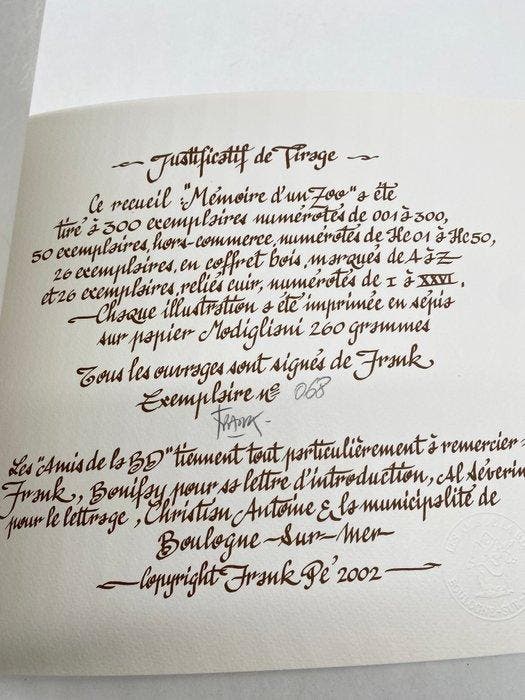 Justificatif de Tirage
Ce recueil "Mémoire d'un Zoo" a été
tiré à 300 exemplaires numérotés de 001 à 300,
50 exemplaires, hors-commerce, numérotés de Hc 01 à Hc 50,
26 exemplaires, en coffret bois, marqués de A à Z
et 26 exemplaires, reliés cuir, numérotés de I à XXVI.
Chaque illustration a été imprimée en sépia
sur papier Modigliani 260 grammes
Tous les ouvrages sont signés de Frank
Exemplaire nº 068
FRANK
Les "Amis de la BD" tiennent tout particulièrement à remercier:
Frank, Bonifay pour sa lettre d'introduction, Al Séverin
pour le lettrage, Christian Antoine & la municipalité de
Boulogne-Sur-Mer
Copyright Frank Pé 2002